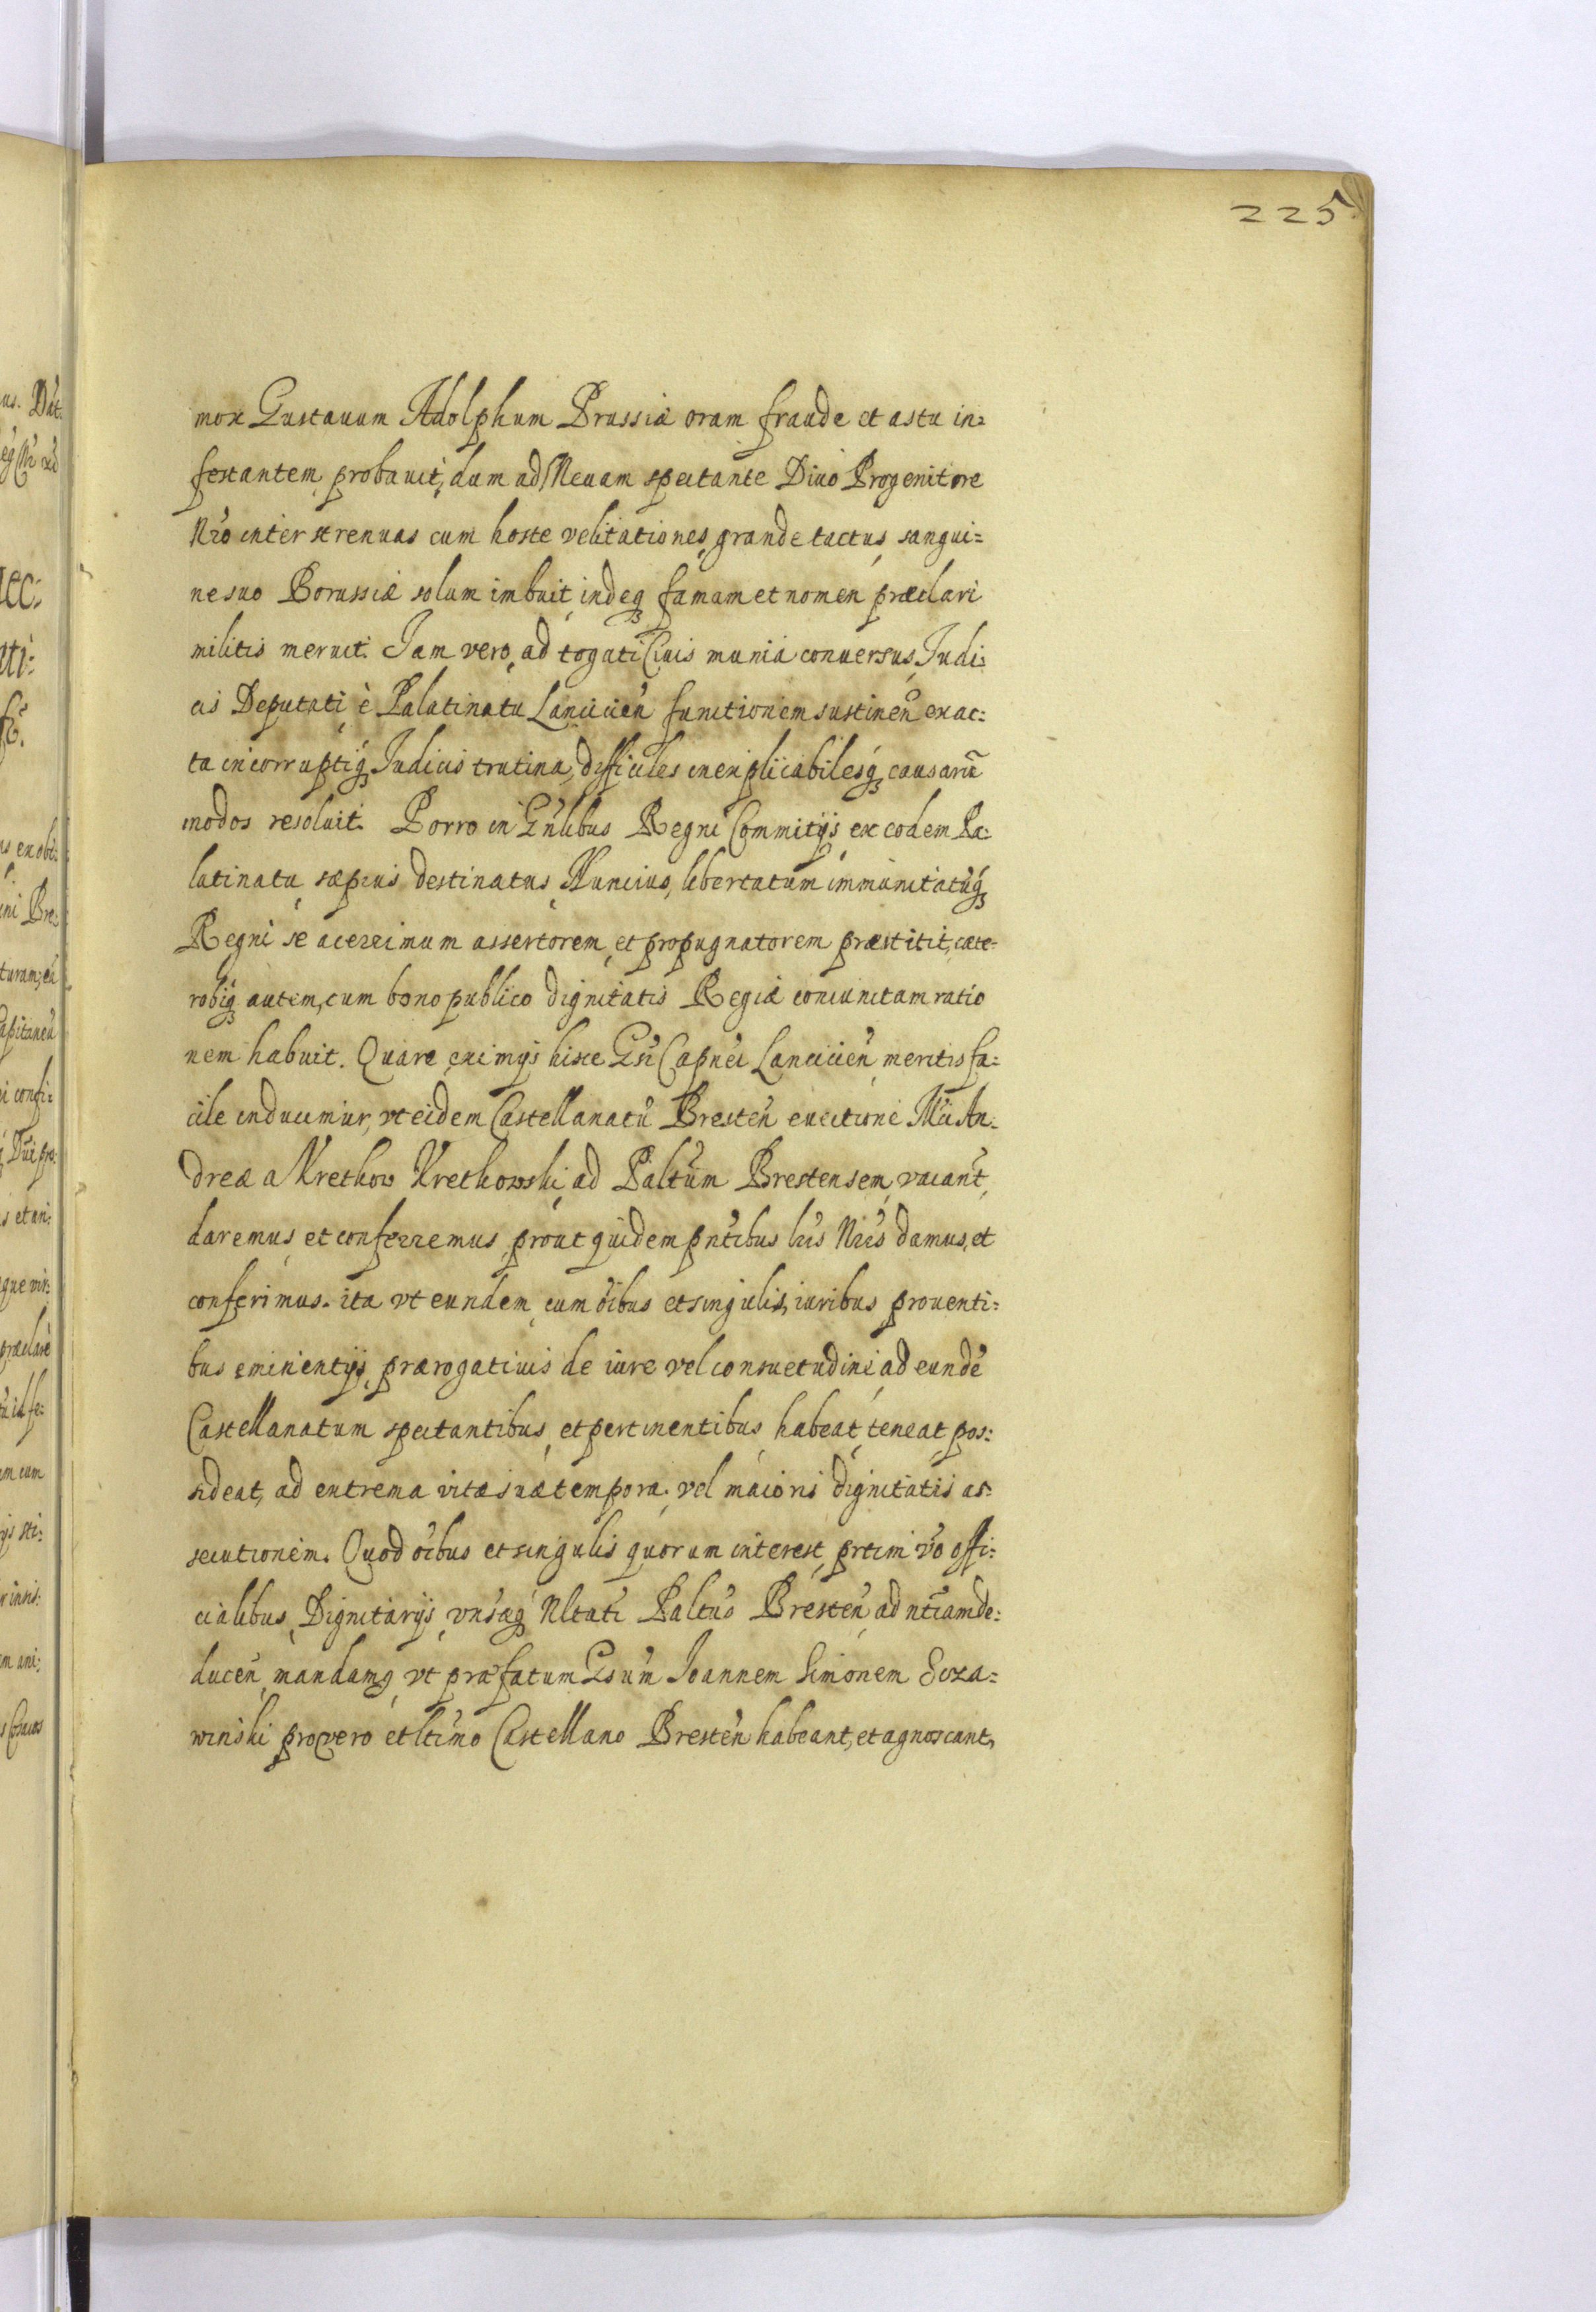 225
mox Gustauum Adolphum Prussiæ oram fraude et astu in=
festantem, probauit, dum ad Meuam spectante Diuo Progenitore
Nr̃o inter strenuas cum hoste velitationes, grande tactus, sangui=
ne suo Borussiæ solum imbuit, indeq₃ famam et nomen præclari
militis meruit. Iam vero, ad togati Ciuis munia conuersus, Iudi=
cis Deputati, è Palatinatu Lancicień functionem sustineń exac=
ta incorruptiq₃ Iudicis trutina, difficiles inexplicabilesq₃ causarũ
modos resoluit. Porro in Gñlibus Regni Commitijs, ex eodem Pa=
latinatu, sæpius destinatus, Nuncius, libertatum immunitatũq₃
Regni se acerrimum assertorem, et propugnatorem præstitit, cæte=
robiq₃ autem, cum bono publico dignitatis Regiæ coniunctam ratio
nem habuit. Quare, eximijs hisce Gsi Capnei Lancicień, meritis fa=
cile inducimur, vt eidem Castellanatũ Bresteń euectione Mci An=
dreæ a Krethow Krethowski, ad Paltũm Brestensem, vacant̃,
daremus, et conferremus, prout quidem pñtibus lr̃is Nr̃is damus, et
conferimus. ita vt eundem, cum õibus et singulis, iuribus prouenti=
bus eminentijs, prærogatiuis de iure vel consuetudini, ad eundẽ
Castellanatum spectantibus, et pertinentibus, habeat, teneat, pos=
sideat, ad extrema vitæ suæ tempora. vel maioris dignitatis as=
secutionem. Quod õibus et singulis quorum interest, prtim ṽo offi=
cialibus, Dignitarijs, vnsæq₃ Nltati Paltũs Bresteń ad ntiam de=
duceń, mandamq₃ vt præfatum Gsũm Ioannem Simonem Scza=
winski pro vero et ltimo Castellano Bresteń habeant, et agnoscant,